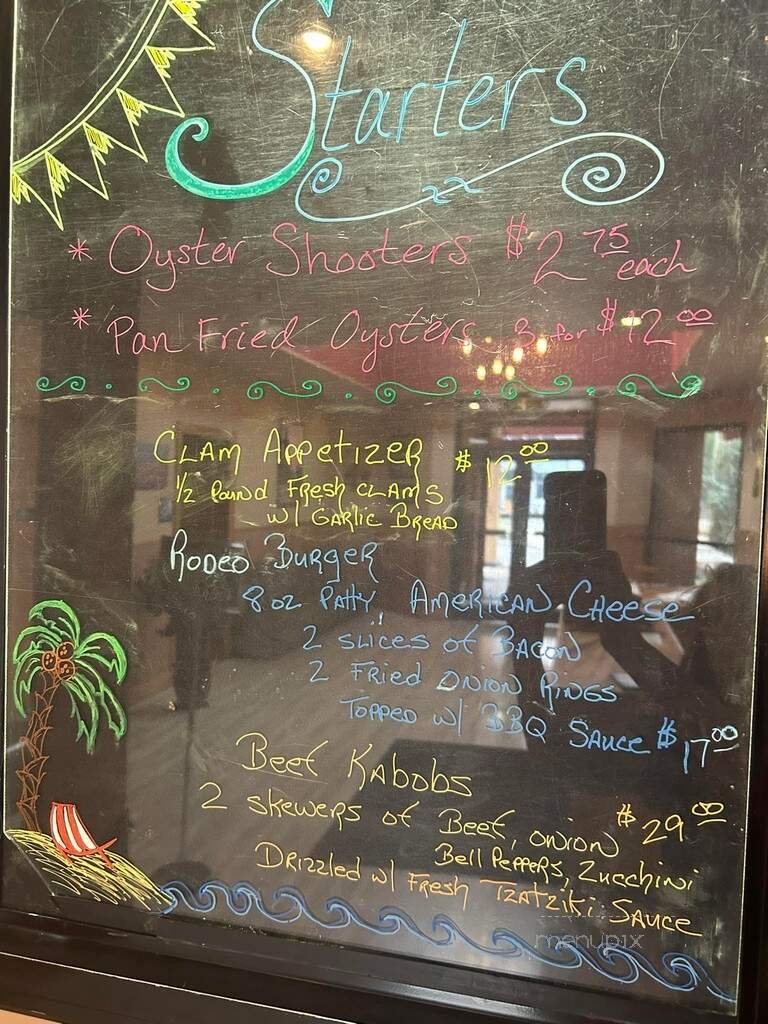 Starters
* Oyster Shooters $2.75 each
* Pan Fried Oysters 3 for $12.00
Clam Appetizer $12.00
1/2 Pound Fresh Clams
w/ Garlic Bread
Rodeo Burger
8 oz Patty, American Cheese
2 slices of Bacon
2 Fried Onion Rings
Topped w/ BBQ Sauce $17.00
Beef Kabobs
2 skewers of Beef, onion $29.00
Bell Peppers, Zucchini
Drizzled w/ Fresh Tzatziki Sauce
menupix